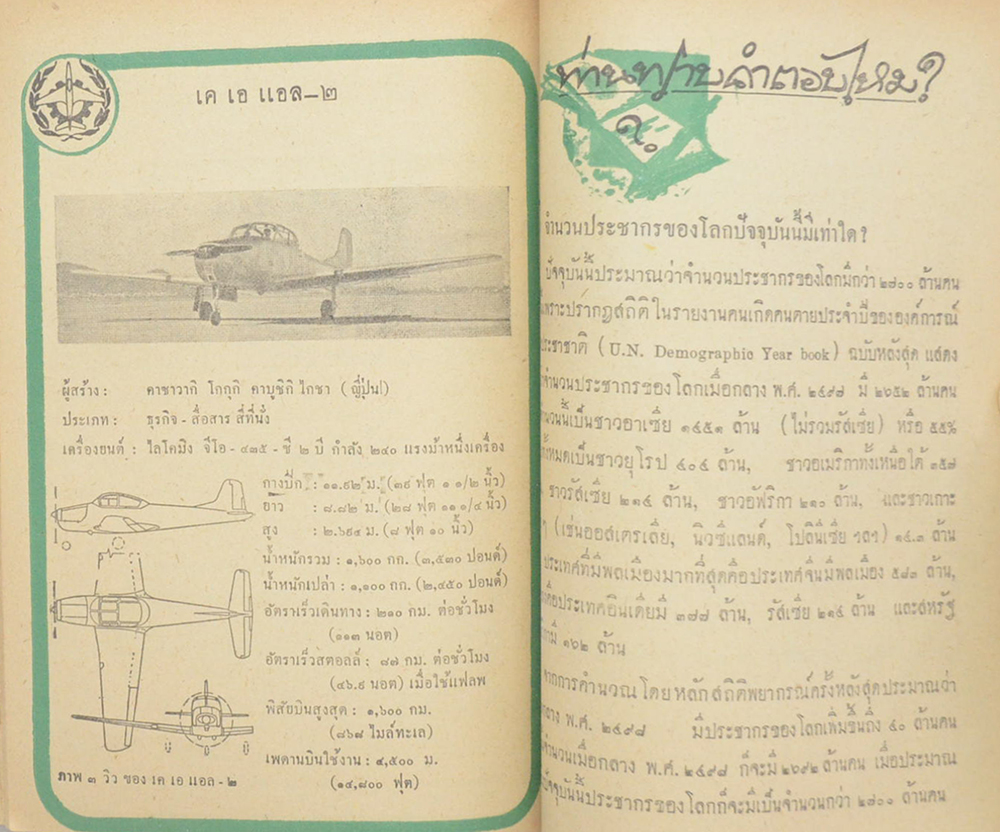 เค เอ แอล–๒
ผู้สร้าง : คาซาวากิ โกกุกิ คาบูชิกิ ไกชา (ญี่ปุ่น)
ประเภท : ธุรกิจ - สื่อสาร สี่ที่นั่ง
เครื่องยนต์ : ไลโคมิง จีโอ - ๔๓๕ - ซี ๒ บี กำลัง ๒๔๐ แรงม้าหนึ่งเครื่อง
กางปีก : ๑๑.๙๒ ม. (๓๙ ฟุต ๑ ๑/๒ นิ้ว)
ยาว : ๘.๘๒ ม. (๒๘ ฟุต ๑๑ ๑/๔ นิ้ว)
สูง : ๒.๖๙๔ ม. (๘ ฟุต ๑๐ นิ้ว)
น้ำหนักรวม : ๑,๖๐๐ กก. (๓,๕๓๐ ปอนด์)
น้ำหนักเปล่า : ๑,๑๐๐ กก. (๒,๔๕๐ ปอนด์)
อัตราเร็วเดินทาง : ๒๑๐ กม. ต่อชั่วโมง
(๑๑๓ นอต)
อัตราเร็วสตอลล์ : ๘๗ กม. ต่อชั่วโมง
(๔๖.๙ นอต) เมื่อใช้แฟลพ
พิสัยบินสูงสุด : ๑,๖๐๐ กม.
(๘๖๘ ไมล์ทะเล)
เพดานบินใช้งาน : ๔,๕๐๐ ม.
(๑๔,๘๐๐ ฟุต)
ภาพ ๓ วิว ของ เค เอ แอล - ๒
ท่านทราบคำตอบไหม?
จำนวนประชากรของโลกปัจจุบันนี้มีเท่าใด?
ปัจจุบันนี้ประมาณว่าจำนวนประชากรของโลกมีกว่า ๒๘๐๐ ล้านคน
เพราะปรากฏสถิติในรายงานคนเกิดคนตายประจำปีขององค์การณ์
ประชาชาติ (U.N. Demographic Year book) ฉบับหลังสุด แสดง
จำนวนประชากรของโลกเมื่อกลาง พ.ศ. ๒๔๙๘ มี ๒๖๕๒ ล้านคน
นี้เป็นชาวอาเซีย ๑๔๕๑ ล้าน (ไม่รวมรัสเซีย) หรือ ๕๕%
เป็นชาวยุโรป ๔๐๔ ล้าน, ชาวอเมริกาทั้งเหนือใต้ ๓๕๗
ชาวรัสเซีย ๒๑๕ ล้าน, ชาวอัฟริกา ๒๑๐ ล้าน, และชาวเกาะ
ๆ (เช่นออสเตรเลีย, นิวซีแลนด์, โปลินีเซีย ฯลฯ) ๑๔.๓ ล้าน
ประเทศที่มีพลเมืองมากที่สุดคือประเทศจีนมีพลเมือง ๕๘๓ ล้าน,
คือประเทศอินเดียมี ๓๗๗ ล้าน, รัสเซีย ๒๑๕ ล้าน และสหรัฐ
มี ๑๖๒ ล้าน
จากการคำนวณ โดยหลักสถิติพยากรณ์ครั้งหลังสุดประมาณว่า
กลาง พ.ศ. ๒๔๙๘ มีประชากรของโลกเพิ่มขึ้นถึง ๔๐ ล้านคน
จำนวนเมื่อกลาง พ.ศ. ๒๔๙๘ ก็จะมี ๒๖๙๒ ล้านคน เมื่อประมาณ
ปัจจุบันนี้ประชากรของโลกก็จะมีเป็นจำนวนกว่า ๒๘๐๐ ล้านคน